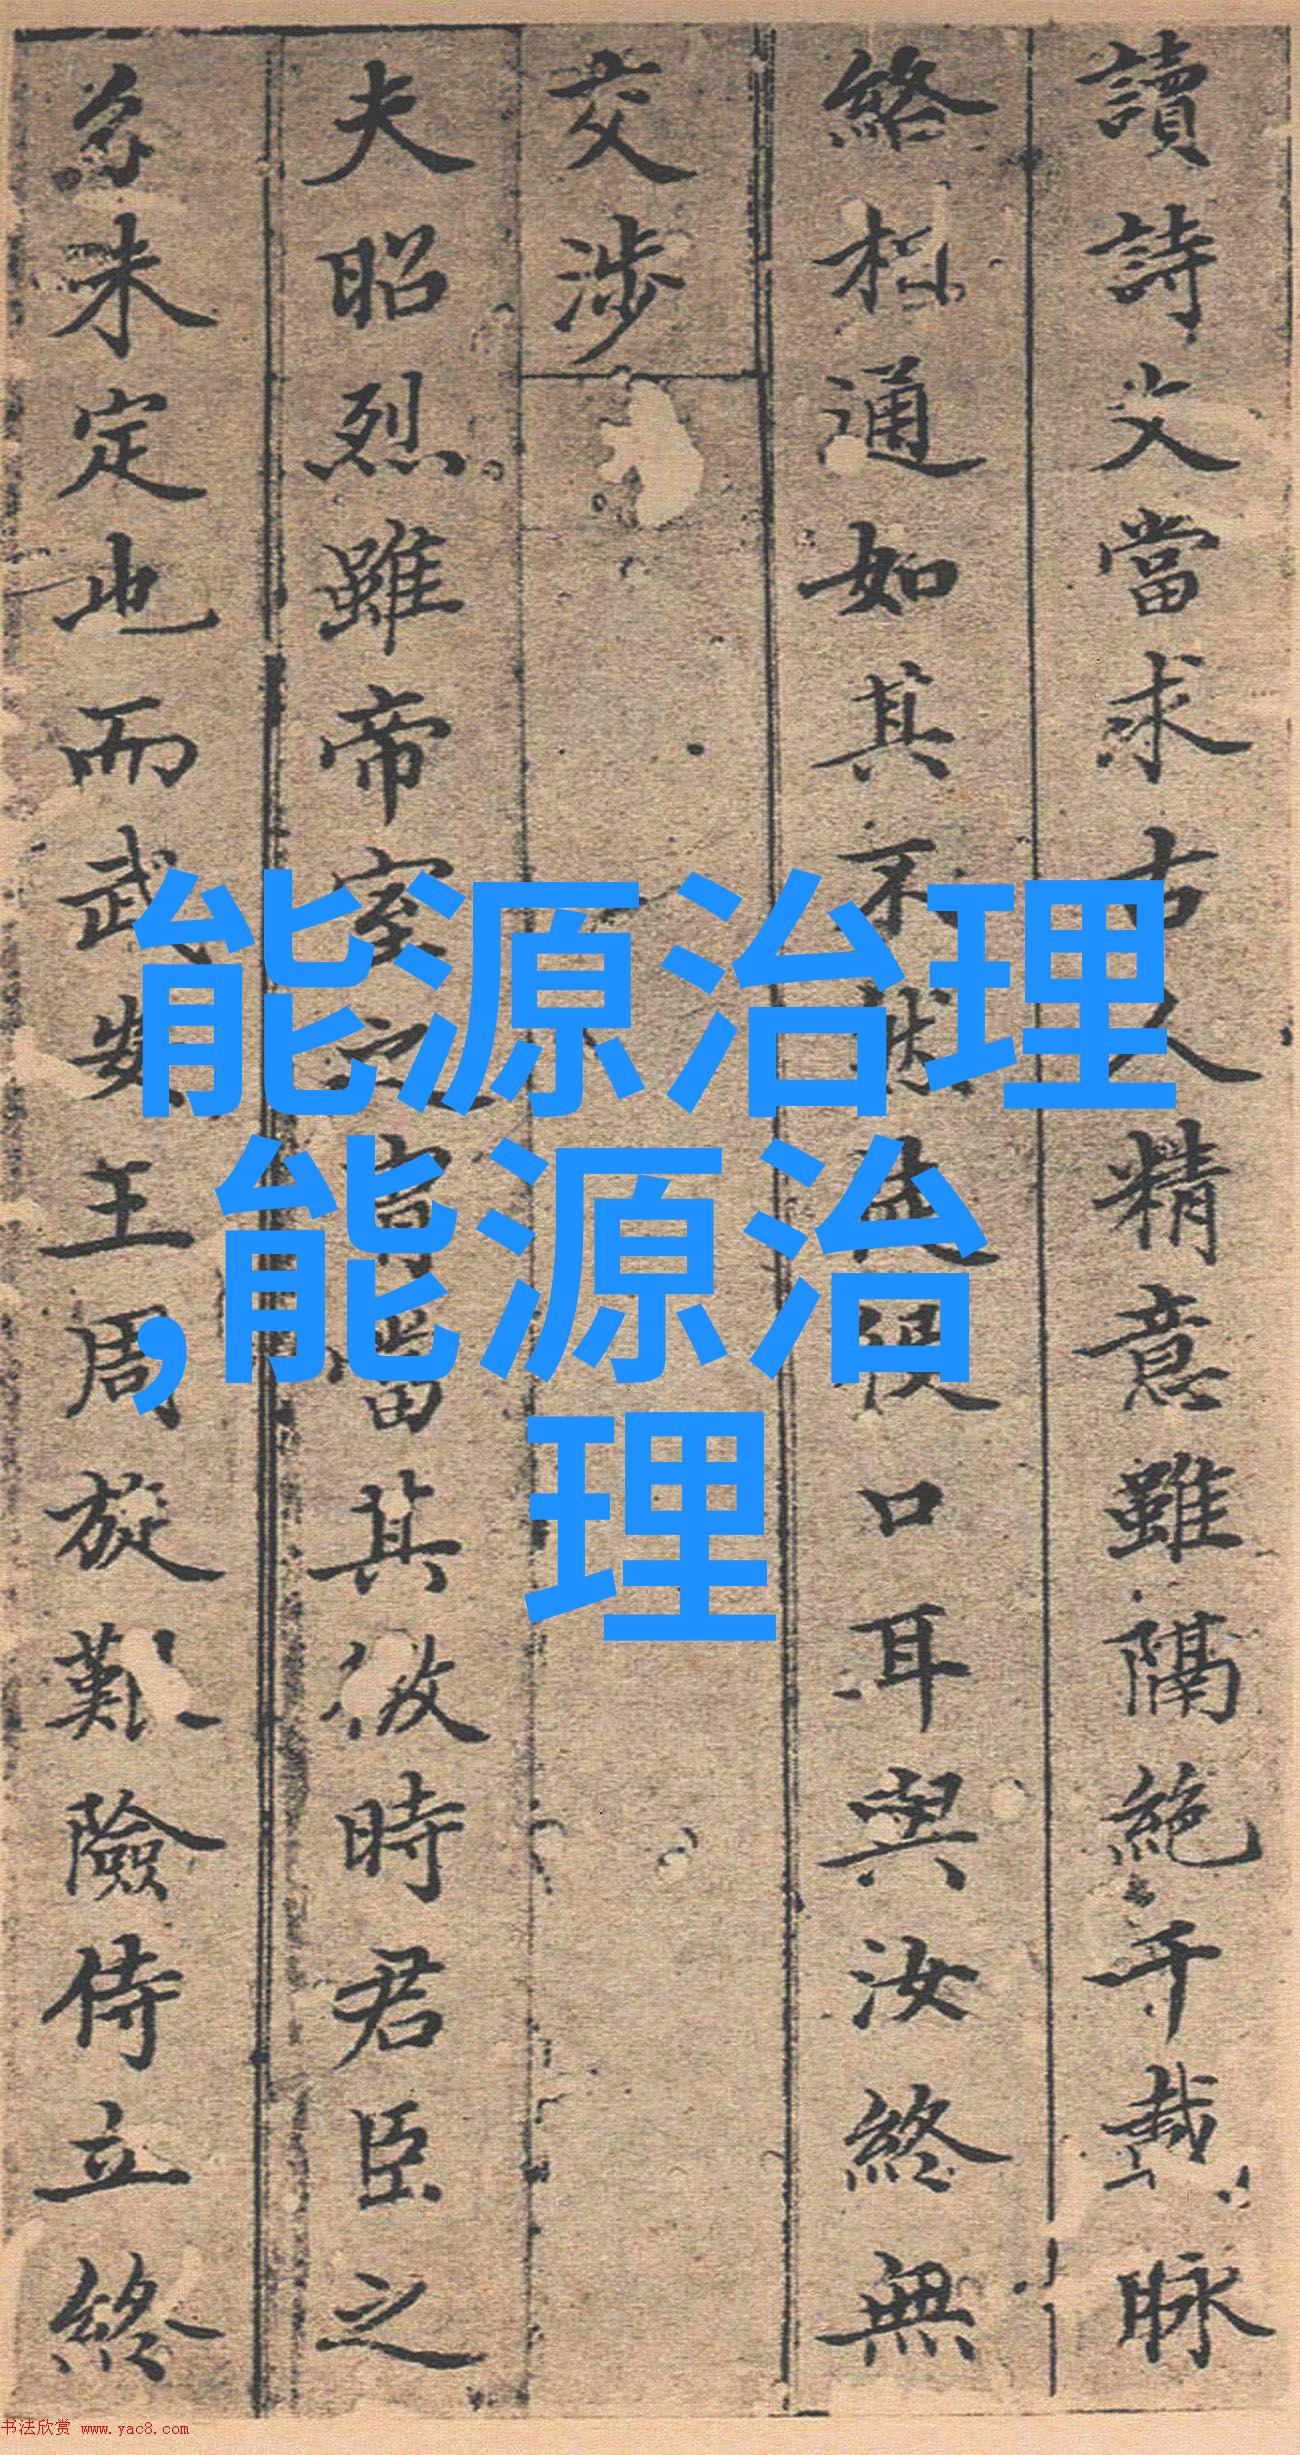 讀詩文當求古人精意雖隔絶千載脉
絡相通如其不然徒
口耳與汝終無
交涉
夫昭烈雖帝室之胄當其微時君臣之
名未定也而武安王周旋艱險侍立終
能源治理
,能源治
理
书法欣赏 www.yac8.com